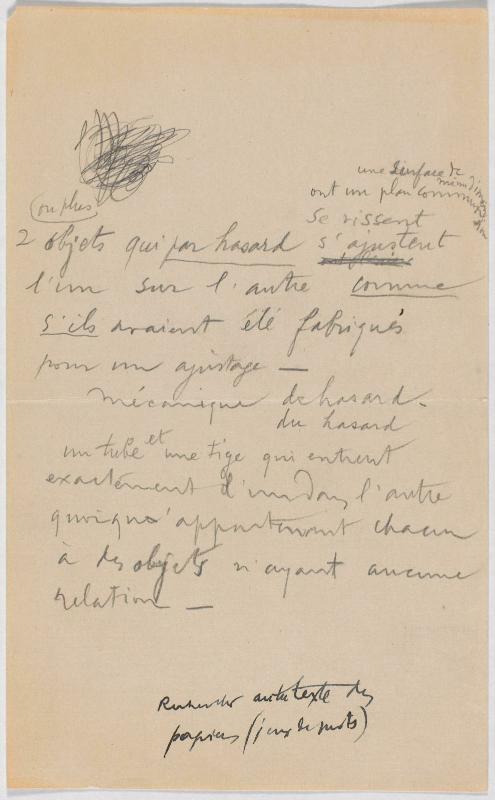 une surface de
même dimension
ont un plan commun
se vissent
(ou plus)
2 objets qui par hasard s'ajustent
l'un sur l'autre comme
s'ils avaient été fabriqués
pour un ajustage —
mécanique de hasard -
du hasard
un tube et une tige qui entrent
exactement l'un dans l'autre
quoiqu'appartenant chacun
à des objets n'ayant aucune
relation —
Rechercher texte des
papiers (jeux de mots)